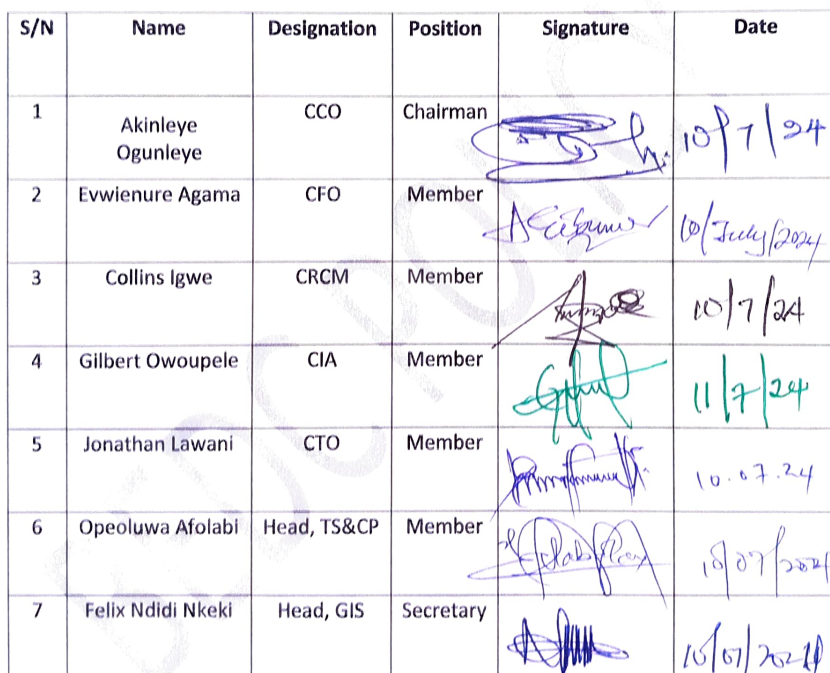 S/N Name Designation Position Signature Date
1 Akinleye Ogunleye CCO Chairman 10/7/24
2 Evwienure Agama CFO Member 10/July/2024
3 Collins Igwe CRCM Member 10/7/24
4 Gilbert Owoupele CIA Member 11/7/24
5 Jonathan Lawani CTO Member 10.07.24
6 Opeoluwa Afolabi Head, TS&CP Member 10/07/2024
7 Felix Ndidi Nkeki Head, GIS Secretary 10/07/2024